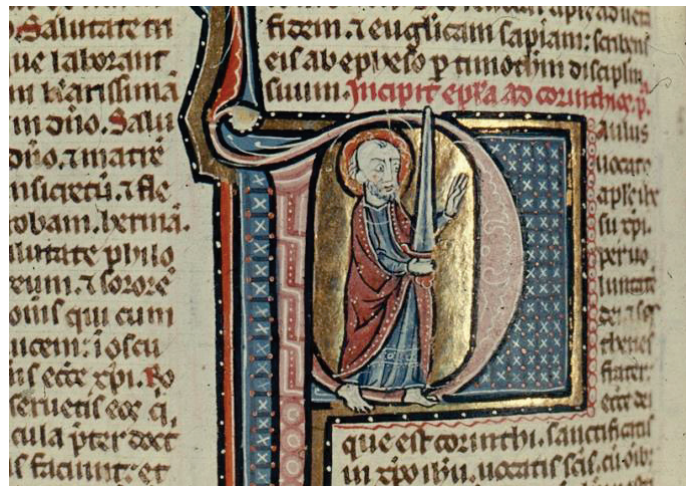 Salutate tri
que laborant
m karissimā
in dño. Salu
dño. ⁊ matrē
⁊ fle
bermā.
salutate philo
reum. ⁊ sororē
omīs qui cum
in oscu
ecctē xp̄i. Ro
observetis eos q̄
cula p̄ter doct
faciunt: et
fidem. ⁊ euglicam sapiam: scribens
eis ab epheso p timotheum discipulum
suum. Incipit epl̄a ad corinthios. p̄.
Paulus
vocatꝰ
apl̄s ihu
xp̄i.
per vo
luntatē
dei ⁊ sos
thenes
frater.
ecctē dei
que est corinthi. sanctificatis
in xp̄o ihu. vocatis scīs. cū oib;